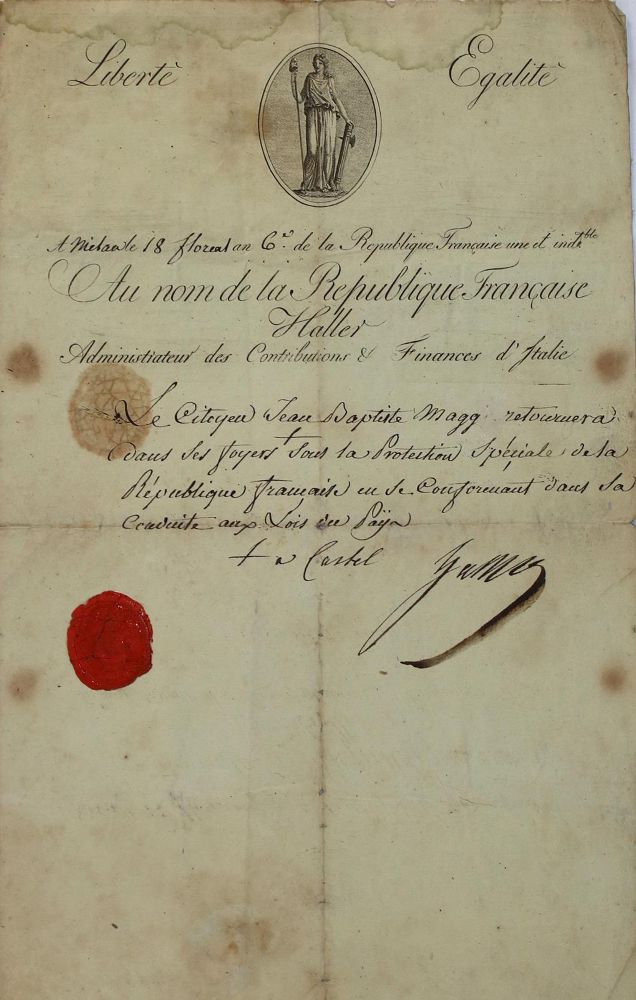 Liberté Egalité
A Milan le 18 floreal an 6.e de la Republique Française une et indi.ble
Au nom de la Republique Française
Haller
Administrateur des Contributions & Finances d'Italie
Le Citoyen Jean Baptiste Magg retournera
dans ses foyers + sous la Protection Spéciale de la
République française en se Conformant dans sa
Conduite aux Lois du Païs
+ a Castel